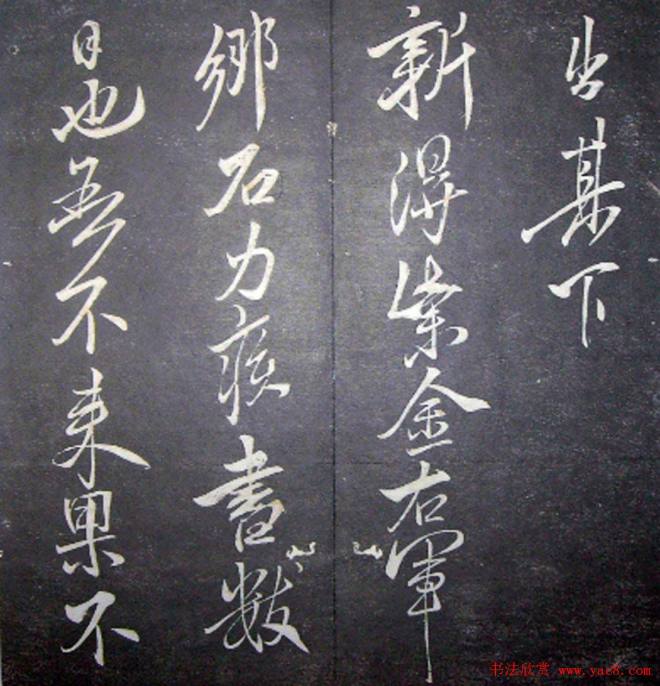 出某下
新得紫金右軍
鄉石力疾書數
日也吾不来果不
书法欣赏 www.yac8.com